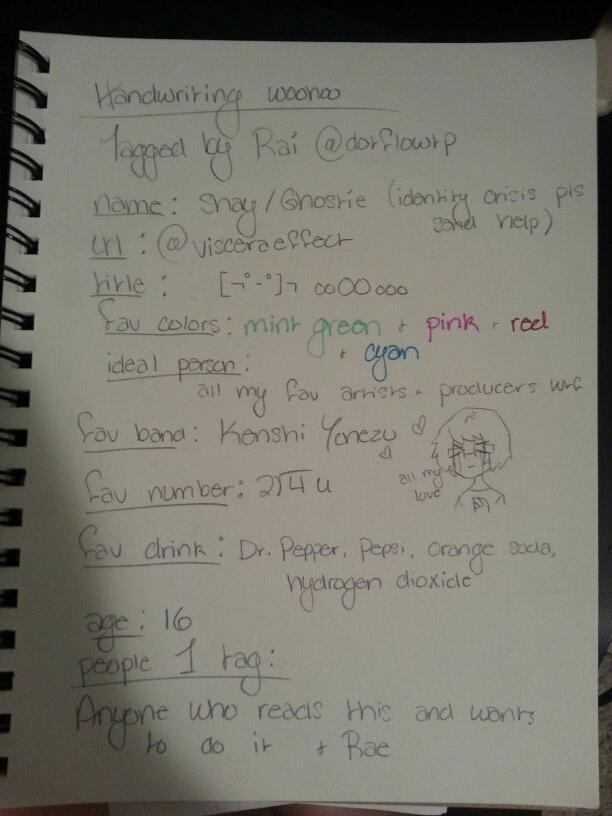 Handwriting woohoo
Tagged by Rai @dorflowrp
name: Shay/Ghostie (identity crisis pls
send help)
url: @visceraeffect
title: [¬º-°]¬ ooOOooo
fav colors: mint green + pink + red
+ cyan
ideal person:
all my fav artists + producers wtf
fav band: Kenshi Yonezu ♡
♡
all my
love
fav number: 2√4 u
fav drink: Dr. Pepper, Pepsi, orange soda,
hydrogen dioxide
age: 16
people I tag:
Anyone who reads this and wants
to do it + Rae